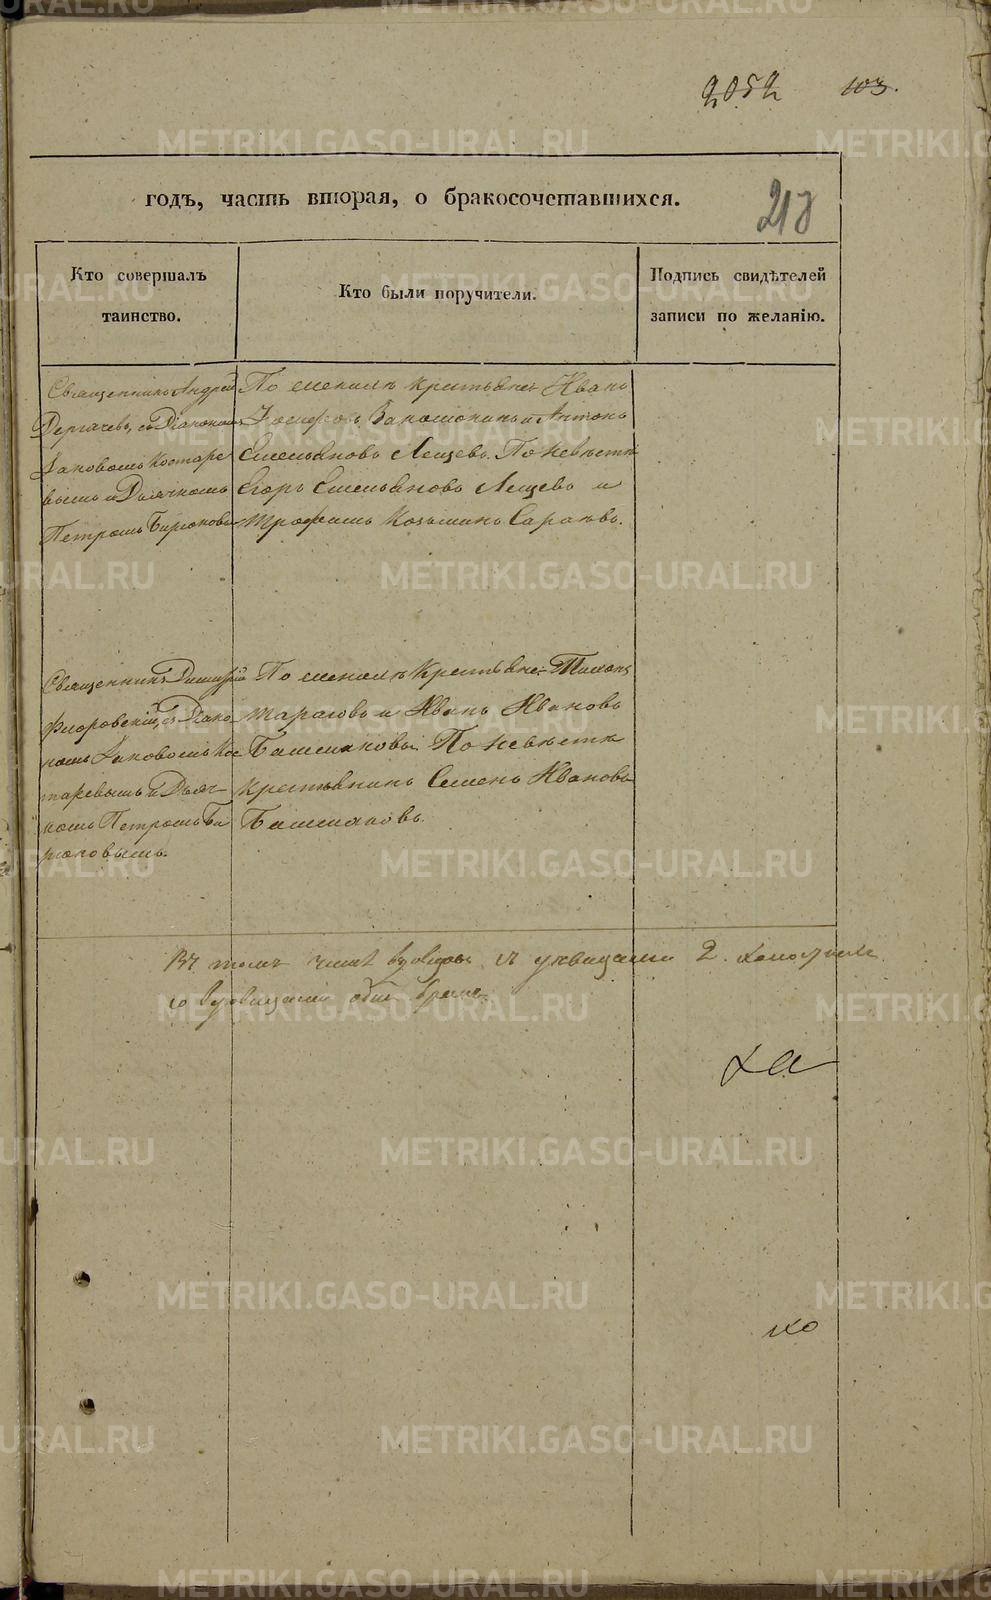 2052 103.
годъ, часть вторая, о бракосочетавшихся.
218
Кто совершалъ
таинство.
Кто были поручители.
Подпись свидѣтелей
записи по желанію.
Священникъ Андрей
Дергачевъ, съ Діакономъ
Іаковомъ Костаре
вымъ и Дьячкомъ
Петромъ Бирюковы
По женихѣ крестьяне: Иванъ
Іосифовъ и Антонъ
Емельяновъ Лещевъ. По невѣстѣ
Егоръ Емельяновъ Лещевъ и
Трофимъ Козьминъ
Священникъ Димитрій
Флоровскій, съ Діако
номъ Іаковомъ Кос
таревымъ и Дьяч-
комъ Петромъ Би
рюковымъ.
По женихѣ крестьяне: Тихонъ
Тарасовъ и Иванъ Ивановъ
Башмаковы. По невѣстѣ
крестьянинъ Семенъ Ивановъ
Башмаковъ.
Въ томъ числѣ вдовцовъ съ 2.
со вдовицами
METRIKI.GASO-URAL.RU